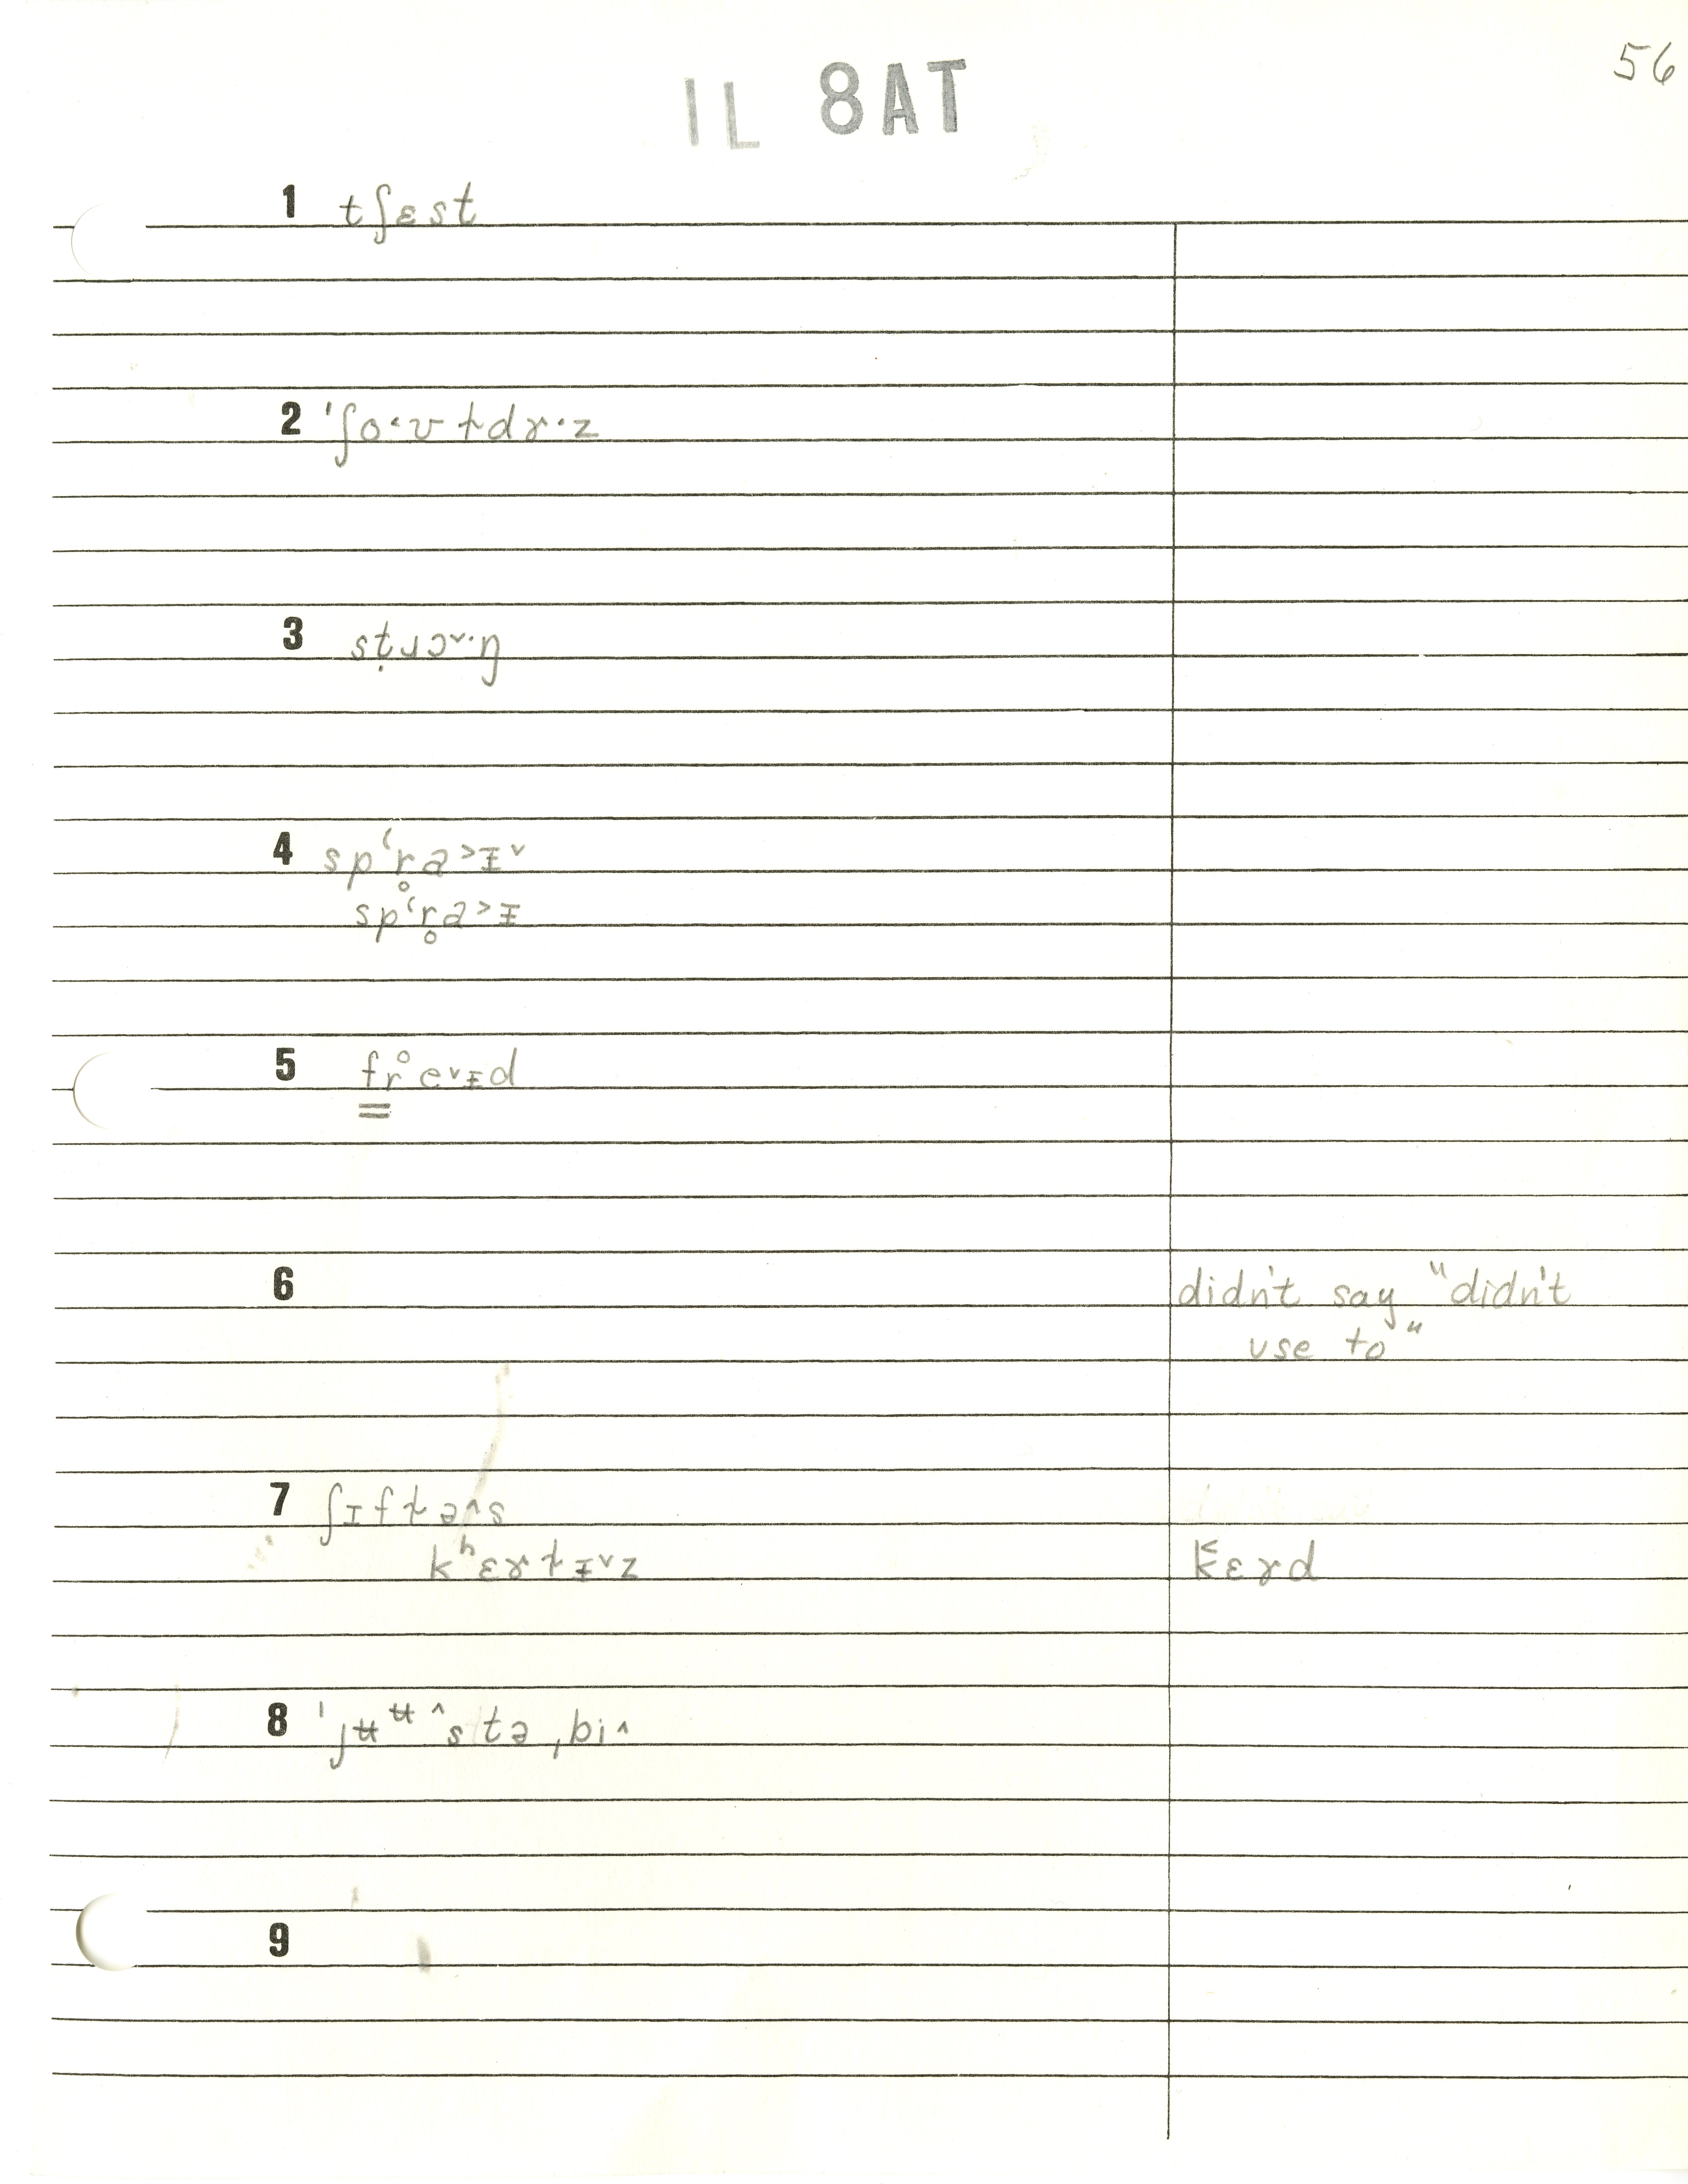 56
IL 8AT
1 tʃɛst
2 ˈʃo˂ʊɫdɤ·z
3 sṭɹɔ˅·ŋ
4 spʻr̥a˃ɪ˅
spʻr̥a˃ɪ
5 fr̊e˅ɪd
6 didn't say "didn't
use to"
7 ʃɪftə˄s
kʰɛɤtɪ˅z k̬ɛɤd
8 ˈjʉᶶ˄stəˌbi˄
9